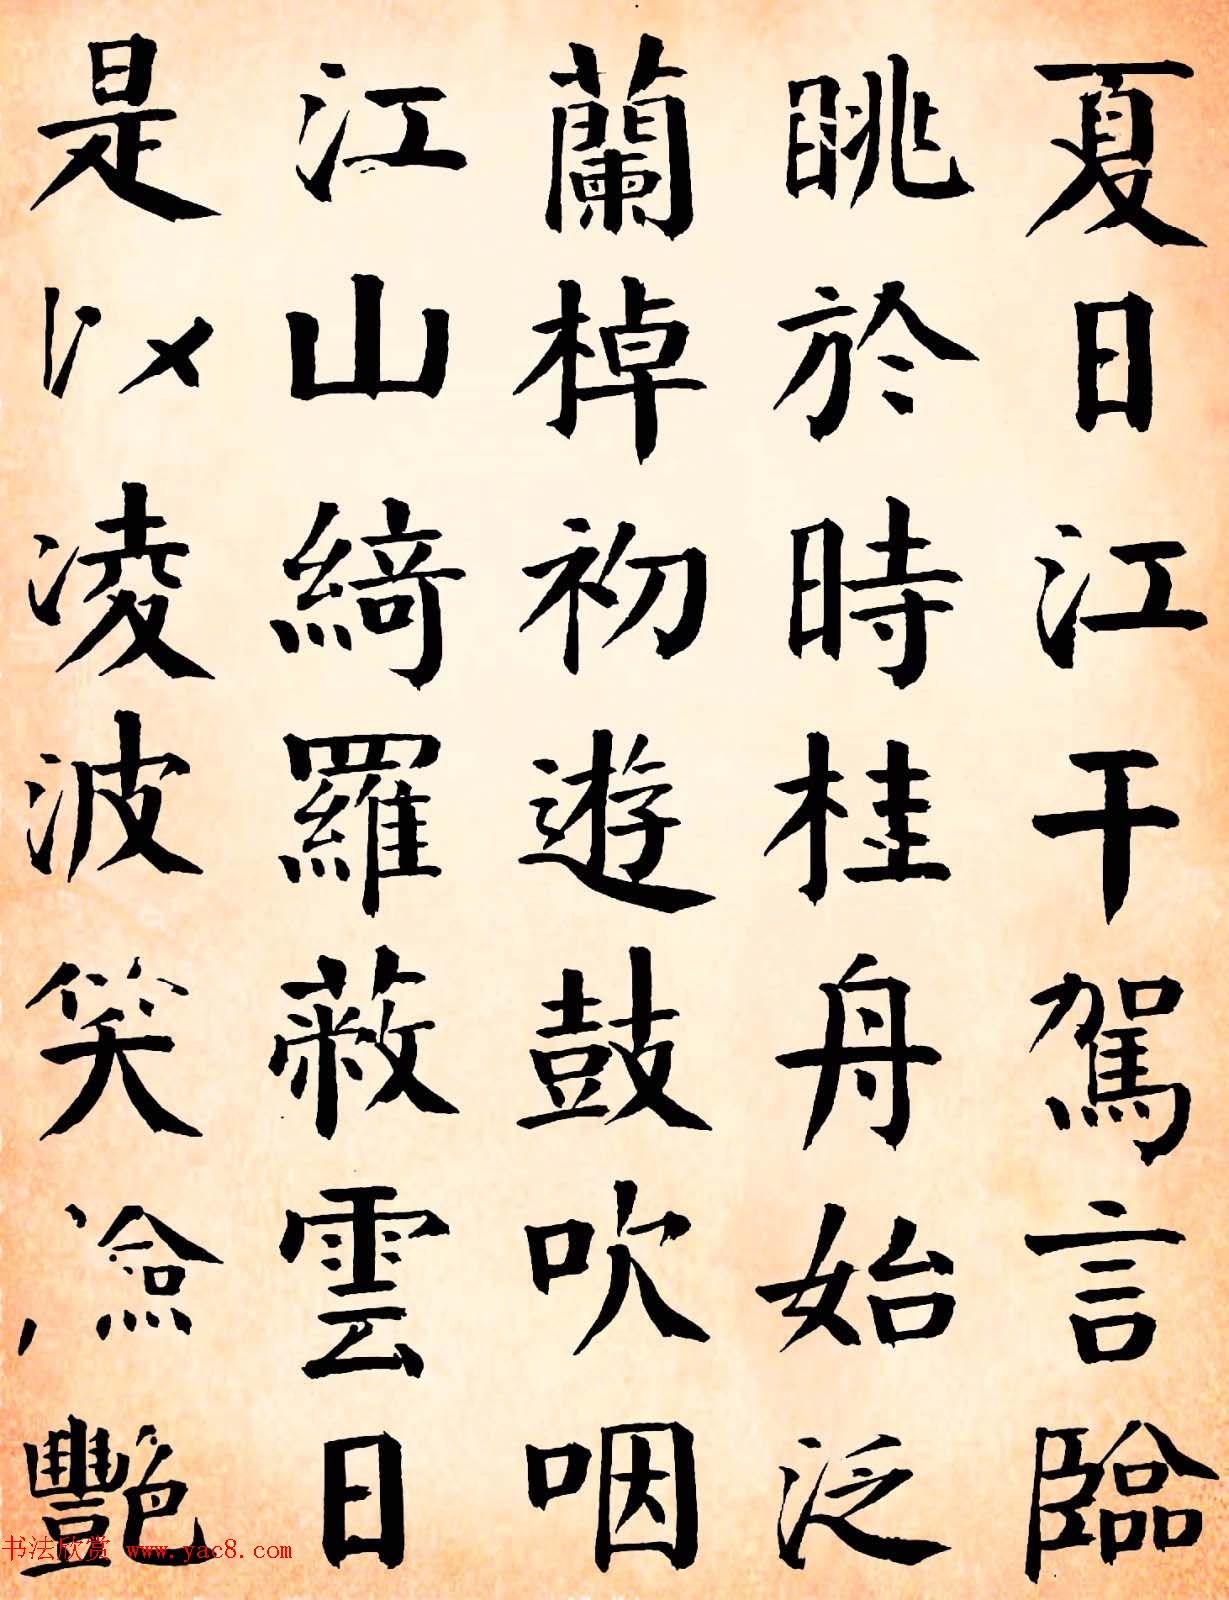 夏日江干駕言臨
眺於時桂舟始泛
蘭棹初遊鼓吹咽
江山綺羅蔽雲日
是以凌波笑瀲艷
书法欣赏 www.yac8.com